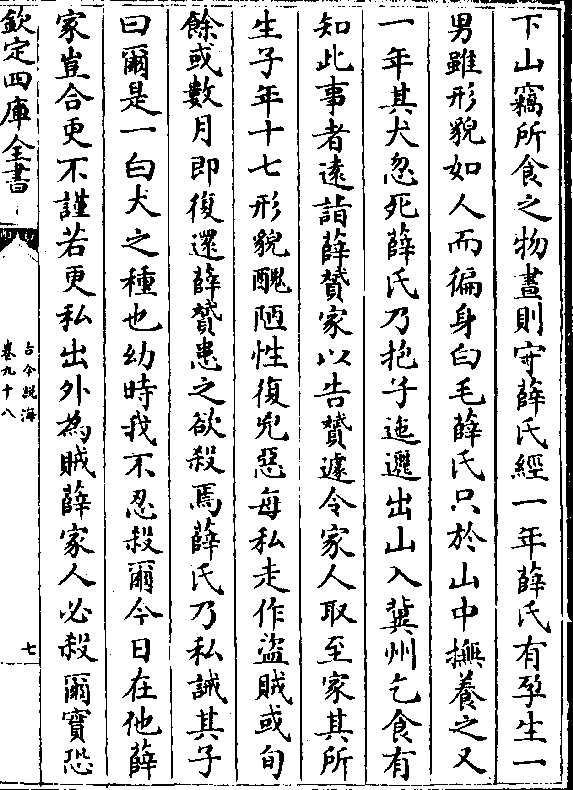 下山竊所食之物晝則守薛氏經一年薛氏有孕生一
男雖形貌如人而徧身白毛薛氏只於山中撫養之又
一年其犬忽死薛氏乃抱子迤邐出山入冀州乞食有
知此事者遠詣薛贇家以告贇遽令家人取至家其所
生子年十七形貌醜陋性復兇惡每私走作盜賊或旬
餘或數月即復還薛贇患之欲殺焉薛氏乃私誡其子
曰爾是一白犬之種也幼時我不忍殺爾今日在他薛
家豈合更不謹若更私出外為賊薛家人必殺爾實恐
欽定四庫全書
古今説海
卷九十八
七